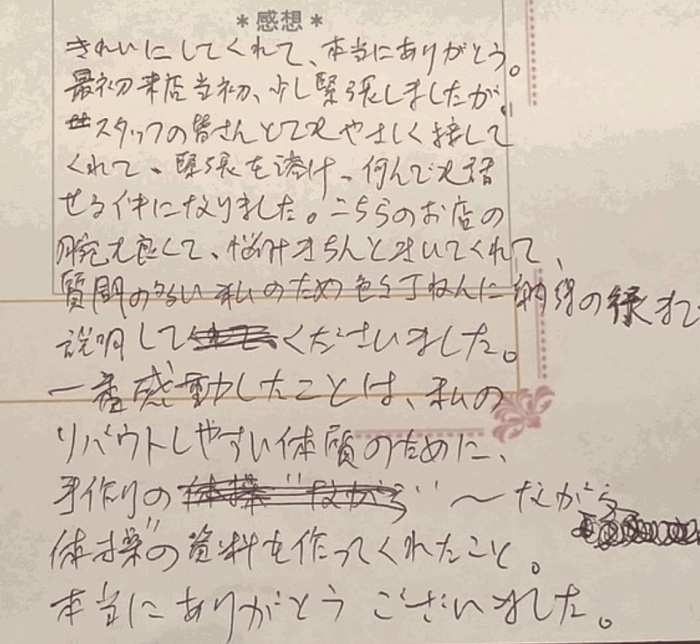 *感想*
きれいにしてくれて、本当にありがとう。
最初来店当初、少し緊張しましたが、
スタッフの皆さんとても やさしく接して
くれて、緊張を溶け、何んでも話
せる仲になりました。こちらのお店の
腕も良くて、悩みきちんときいてくれて、
質問の多い私のため色々丁ねんに納得の行くまで
説明してくださいました。
一番感動したことは、私の
リバウトしやすい体質のために、
手作りの "〜ながら
体操"の資料を作ってくれたこと。
本当にありがとうございました。